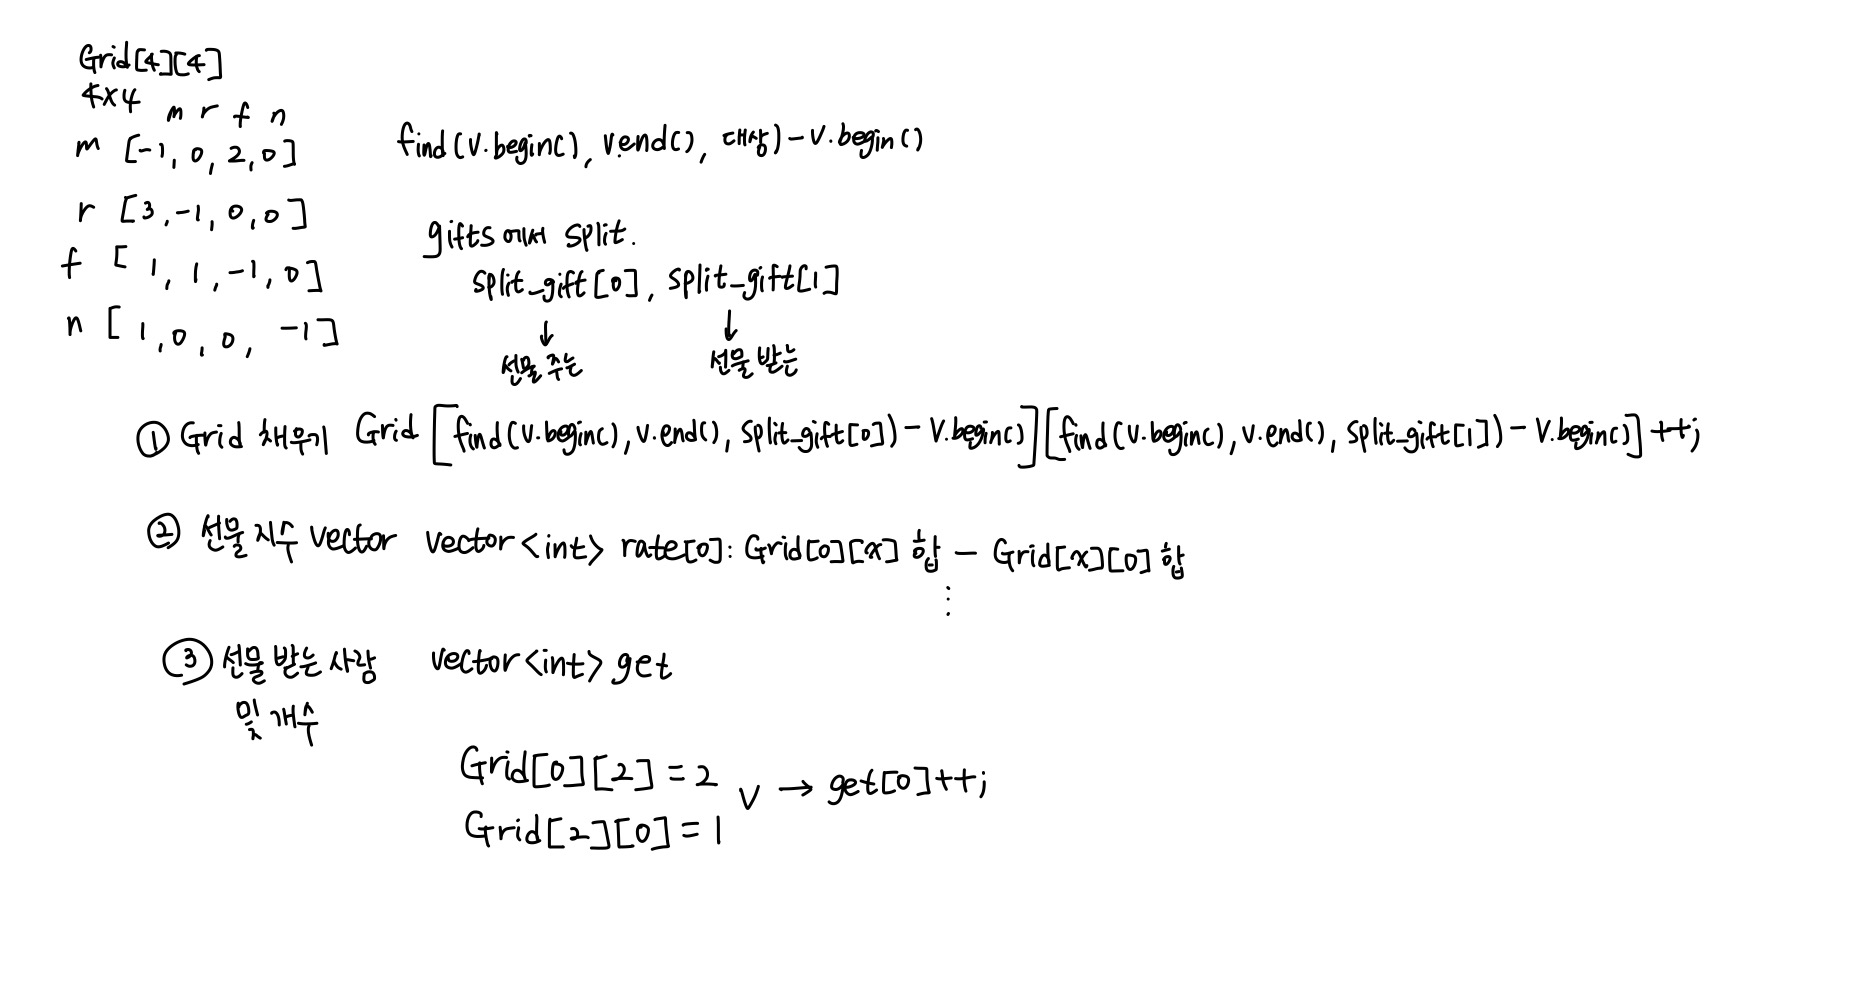 Grid[4][4]
4x4
m r f n
m [-1, 0, 2, 0]
r [3, -1, 0, 0]
f [ 1, 1, -1, 0]
n [ 1, 0, 0, -1]
find(v.begin(), v.end(), 대상) - v.begin()
gifts에서 split.
split_gift[0], split_gift[1]
↓ ↓
선물 주는 선물 받는
① Grid 채우기 Grid[find(v.begin(), v.end(), split_gift[0]) - v.begin()][find(v.begin(), v.end(), split_gift[1]) - v.begin()]++;
② 선물 지수 vector vector<int> rate[0]: Grid[0][x] 합 - Grid[x][0] 합
⋮
③ 선물 받는 사람 vector<int> get
및 개수
Grid[0][2] = 2
∨ → get[0]++;
Grid[2][0] = 1